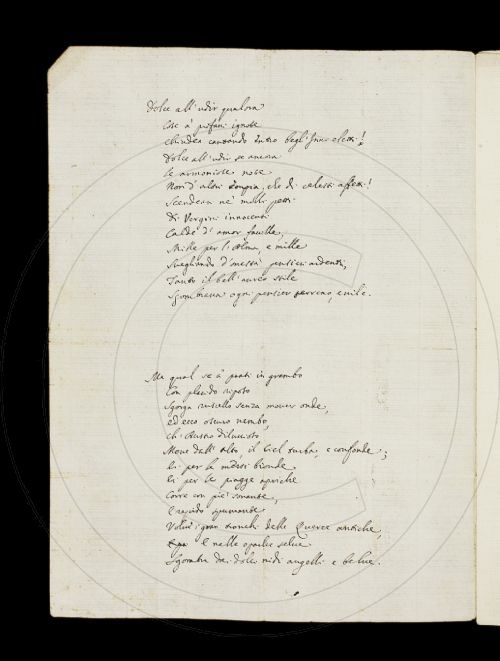 Dolce all' udir qualora
Cose a' profani ignote
Chiudea cantando entro begl' Inni eletti!
Dolce all' udir se ancora
le armoniose note
Non d' altri empia, che di celesti affetti!
Scendean ne' molli petti
Di Vergini innocenti
Calde d' amor faville,
Mille per l' Alma, e mille
Svegliando d' messa pensieri ardenti,
Tanto il bell' aureo stile
Sgombrava ogni pensier terreno, e vile.
Ma qual se a' prati in grembo
Con placido riposo
Sgorga ruscello senza mover onde,
ed ecco oscuro nembo,
ch' Austro
Move dall' Alto, il Ciel turba, e confonde;
Ei per le messi bionde
Ei per le piagge apriche
Corre con piè sonante,
E rapido spumante
Volve i gran tronchi delle Querce antiche,
E nelle opache selve
Sgombra dai dolci nidi augelli e belve.